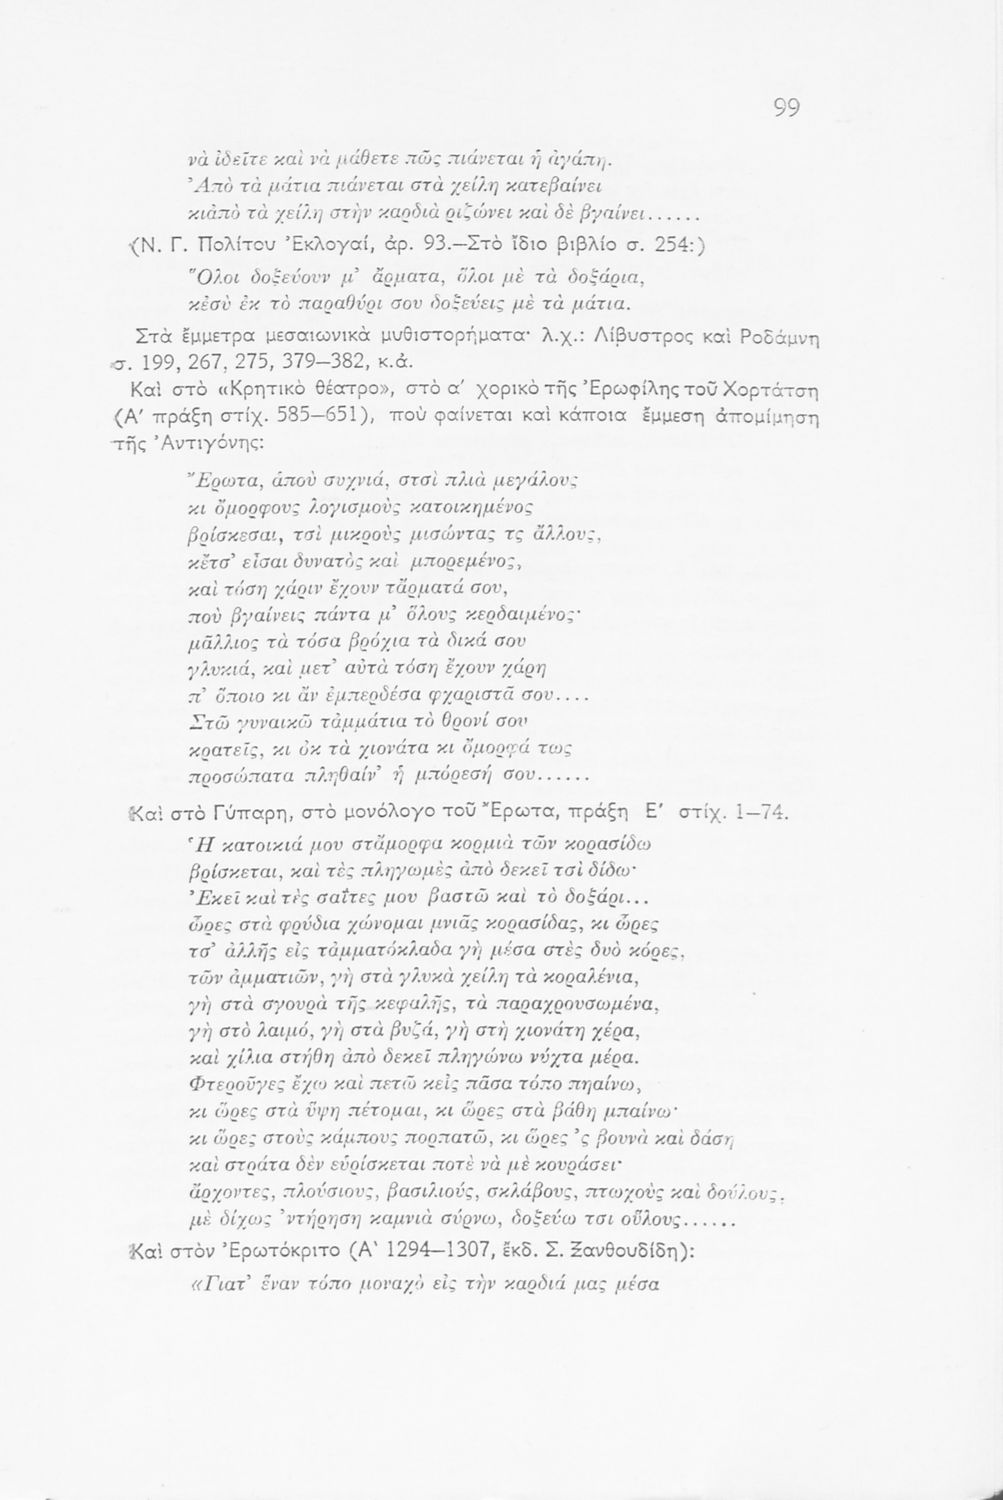 99
νὰ ἰδεῖτε καὶ νὰ μάθετε πῶς πιάνεται ἡ ἀγάπη.
Ἀπὸ τὰ μάτια πιάνεται στὰ χείλη κατεβαίνει
κιἀπὸ τὰ χείλη στὴν καρδιὰ ριζώνει καὶ δὲ βγαίνει......
(Ν. Γ. Πολίτου Ἐκλογαί, ἀρ. 93.—Στὸ ἴδιο βιβλίο σ. 254:)
"Ολοι δοξεύουν μ' ἄρματα, ὅλοι μὲ τὰ δοξάρια,
κἐσὺ ἐκ τὸ παραθύρι σου δοξεύεις μὲ τὰ μάτια.
Στὰ ἔμμετρα μεσαιωνικὰ μυθιστορήματα· λ.χ.: Λίβυστρος καὶ Ροδάμνη
σ. 199, 267, 275, 379—382, κ.ἀ.
Καὶ στὸ «Κρητικὸ θέατρο», στὸ α′ χορικὸ τῆς Ἐρωφίλης τοῦ Χορτάτση
(Α′ πράξη στίχ. 585—651), ποὺ φαίνεται καὶ κάποια ἔμμεση ἀπομίμηση
τῆς Ἀντιγόνης:
Ἔρωτα, ἁποὺ συχνιά, στσὶ πλιὰ μεγάλους
κι ὄμορφους λογισμοὺς κατοικημένος
βρίσκεσαι, τσὶ μικροὺς μισώντας τς ἄλλους,
κἔτσ' εἶσαι δυνατὸς καὶ μπορεμένος,
καὶ τόση χάριν ἔχουν τἄρματά σου,
ποὺ βγαίνεις πάντα μ' ὅλους κερδαιμένος·
μᾶλλιος τὰ τόσα βρόχια τὰ δικά σου
γλυκιά, καὶ μετ' αὐτὰ τόση ἔχουν χάρη
π' ὅποιο κι ἂν ἐμπερδέσα φχαριστᾶ σου....
Στῶ γυναικῶ τἀμμάτια τὸ θρονί σου
κρατεῖς, κι ὀκ τὰ χιονάτα κι ὄμορφά τως
προσώπατα πληθαίν' ἡ μπόρεσή σου......
Καὶ στὸ Γύπαρη, στὸ μονόλογο τοῦ Ἔρωτα, πράξη Ε′ στίχ. 1—74.
Ἡ κατοικιά μου στἄμορφα κορμιὰ τῶν κορασίδω
βρίσκεται, καὶ τὲς πληγωμὲς ἀπὸ δεκεῖ τσὶ δίδω·
Ἐκεῖ καὶ τὲς σαΐτες μου βαστῶ καὶ τὸ δοξάρι...
ὧρες στὰ φρύδια χώνομαι μνιᾶς κορασίδας, κι ὧρες
τσ' ἀλλῆς εἰς τἀμματόκλαδα γὴ μέσα στὲς δυὸ κόρες,
τῶν ἀμματιῶν, γὴ στὰ γλυκὰ χείλη τὰ κοραλένια,
γὴ στὰ σγουρὰ τῆς κεφαλῆς, τὰ παραχρουσωμένα,
γὴ στὸ λαιμό, γὴ στὰ βυζά, γὴ στὴ χιονάτη χέρα,
καὶ χίλια στήθη ἀπὸ δεκεῖ πληγώνω νύχτα μέρα.
Φτεροῦγες ἔχω καὶ πετῶ κεἰς πᾶσα τόπο πηαίνω,
κι ὧρες στὰ ὕψη πέτομαι, κι ὧρες στὰ βάθη μπαίνω·
κι ὧρες στοὺς κάμπους πορπατῶ, κι ὧρες 'ς βουνὰ καὶ δάση
καὶ στράτα δὲν εὑρίσκεται ποτὲ νὰ μὲ κουράσει·
ἄρχοντες, πλούσιους, βασιλιούς, σκλάβους, πτωχοὺς καὶ δούλους,
μὲ δίχως 'ντήρηση καμνιὰ σύρνω, δοξεύω τσι οὕλους......
Καὶ στὸν Ἐρωτόκριτο (Α' 1294—1307, ἔκδ. Σ. Ξανθουδίδη):
«Γιατ' ἕναν τόπο μοναχὸ εἰς τὴν καρδιά μας μέσα